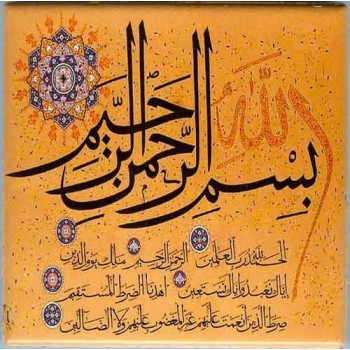 بِسْمِ اللّٰهِ الرَّحْمٰنِ الرَّحِيمِ
الحمد لله رب العلمين الرحمن الرحيم مالك يوم الدين
اياك نعبد واياك نستعين اهدنا الصراط المستقيم
صراط الذين انعمت عليهم غير المغضوب عليهم ولا الضالين